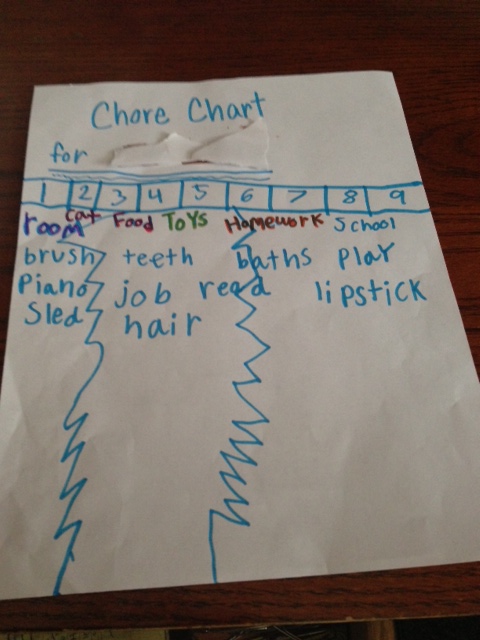 Chore Chart
for
1 2 3 4 5 6 7 8 9
room cat Food Toys Homework School
brush teeth baths play
piano job read lipstick
sled hair